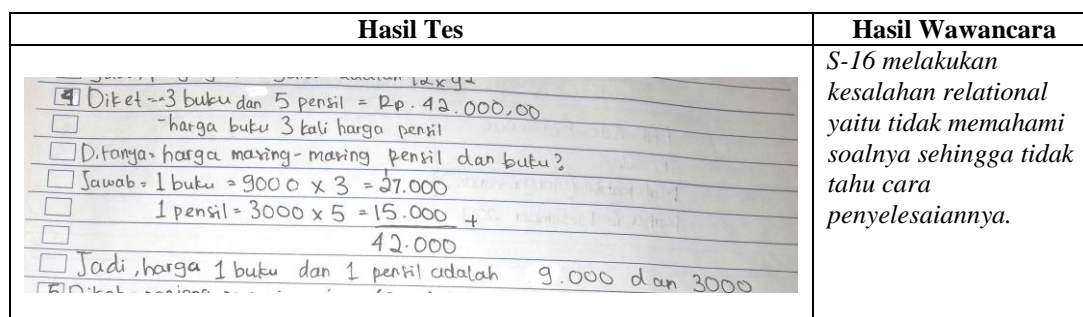 Hasil Tes
Hasil Wawancara
12x42
4 Diket -3 buku dan 5 pensil = Rp. 42.000,00
-harga buku 3 kali harga pensil
Ditanya = harga masing-masing pensil dan buku?
Jawab = 1 buku = 9000 x 3 = 27.000
1 pensil = 3000 x 5 = 15.000 +
42.000
Jadi, harga 1 buku dan 1 pensil adalah 9.000 dan 3000
S-16 melakukan
kesalahan relational
yaitu tidak memahami
soalnya sehingga tidak
tahu cara
penyelesaiannya.